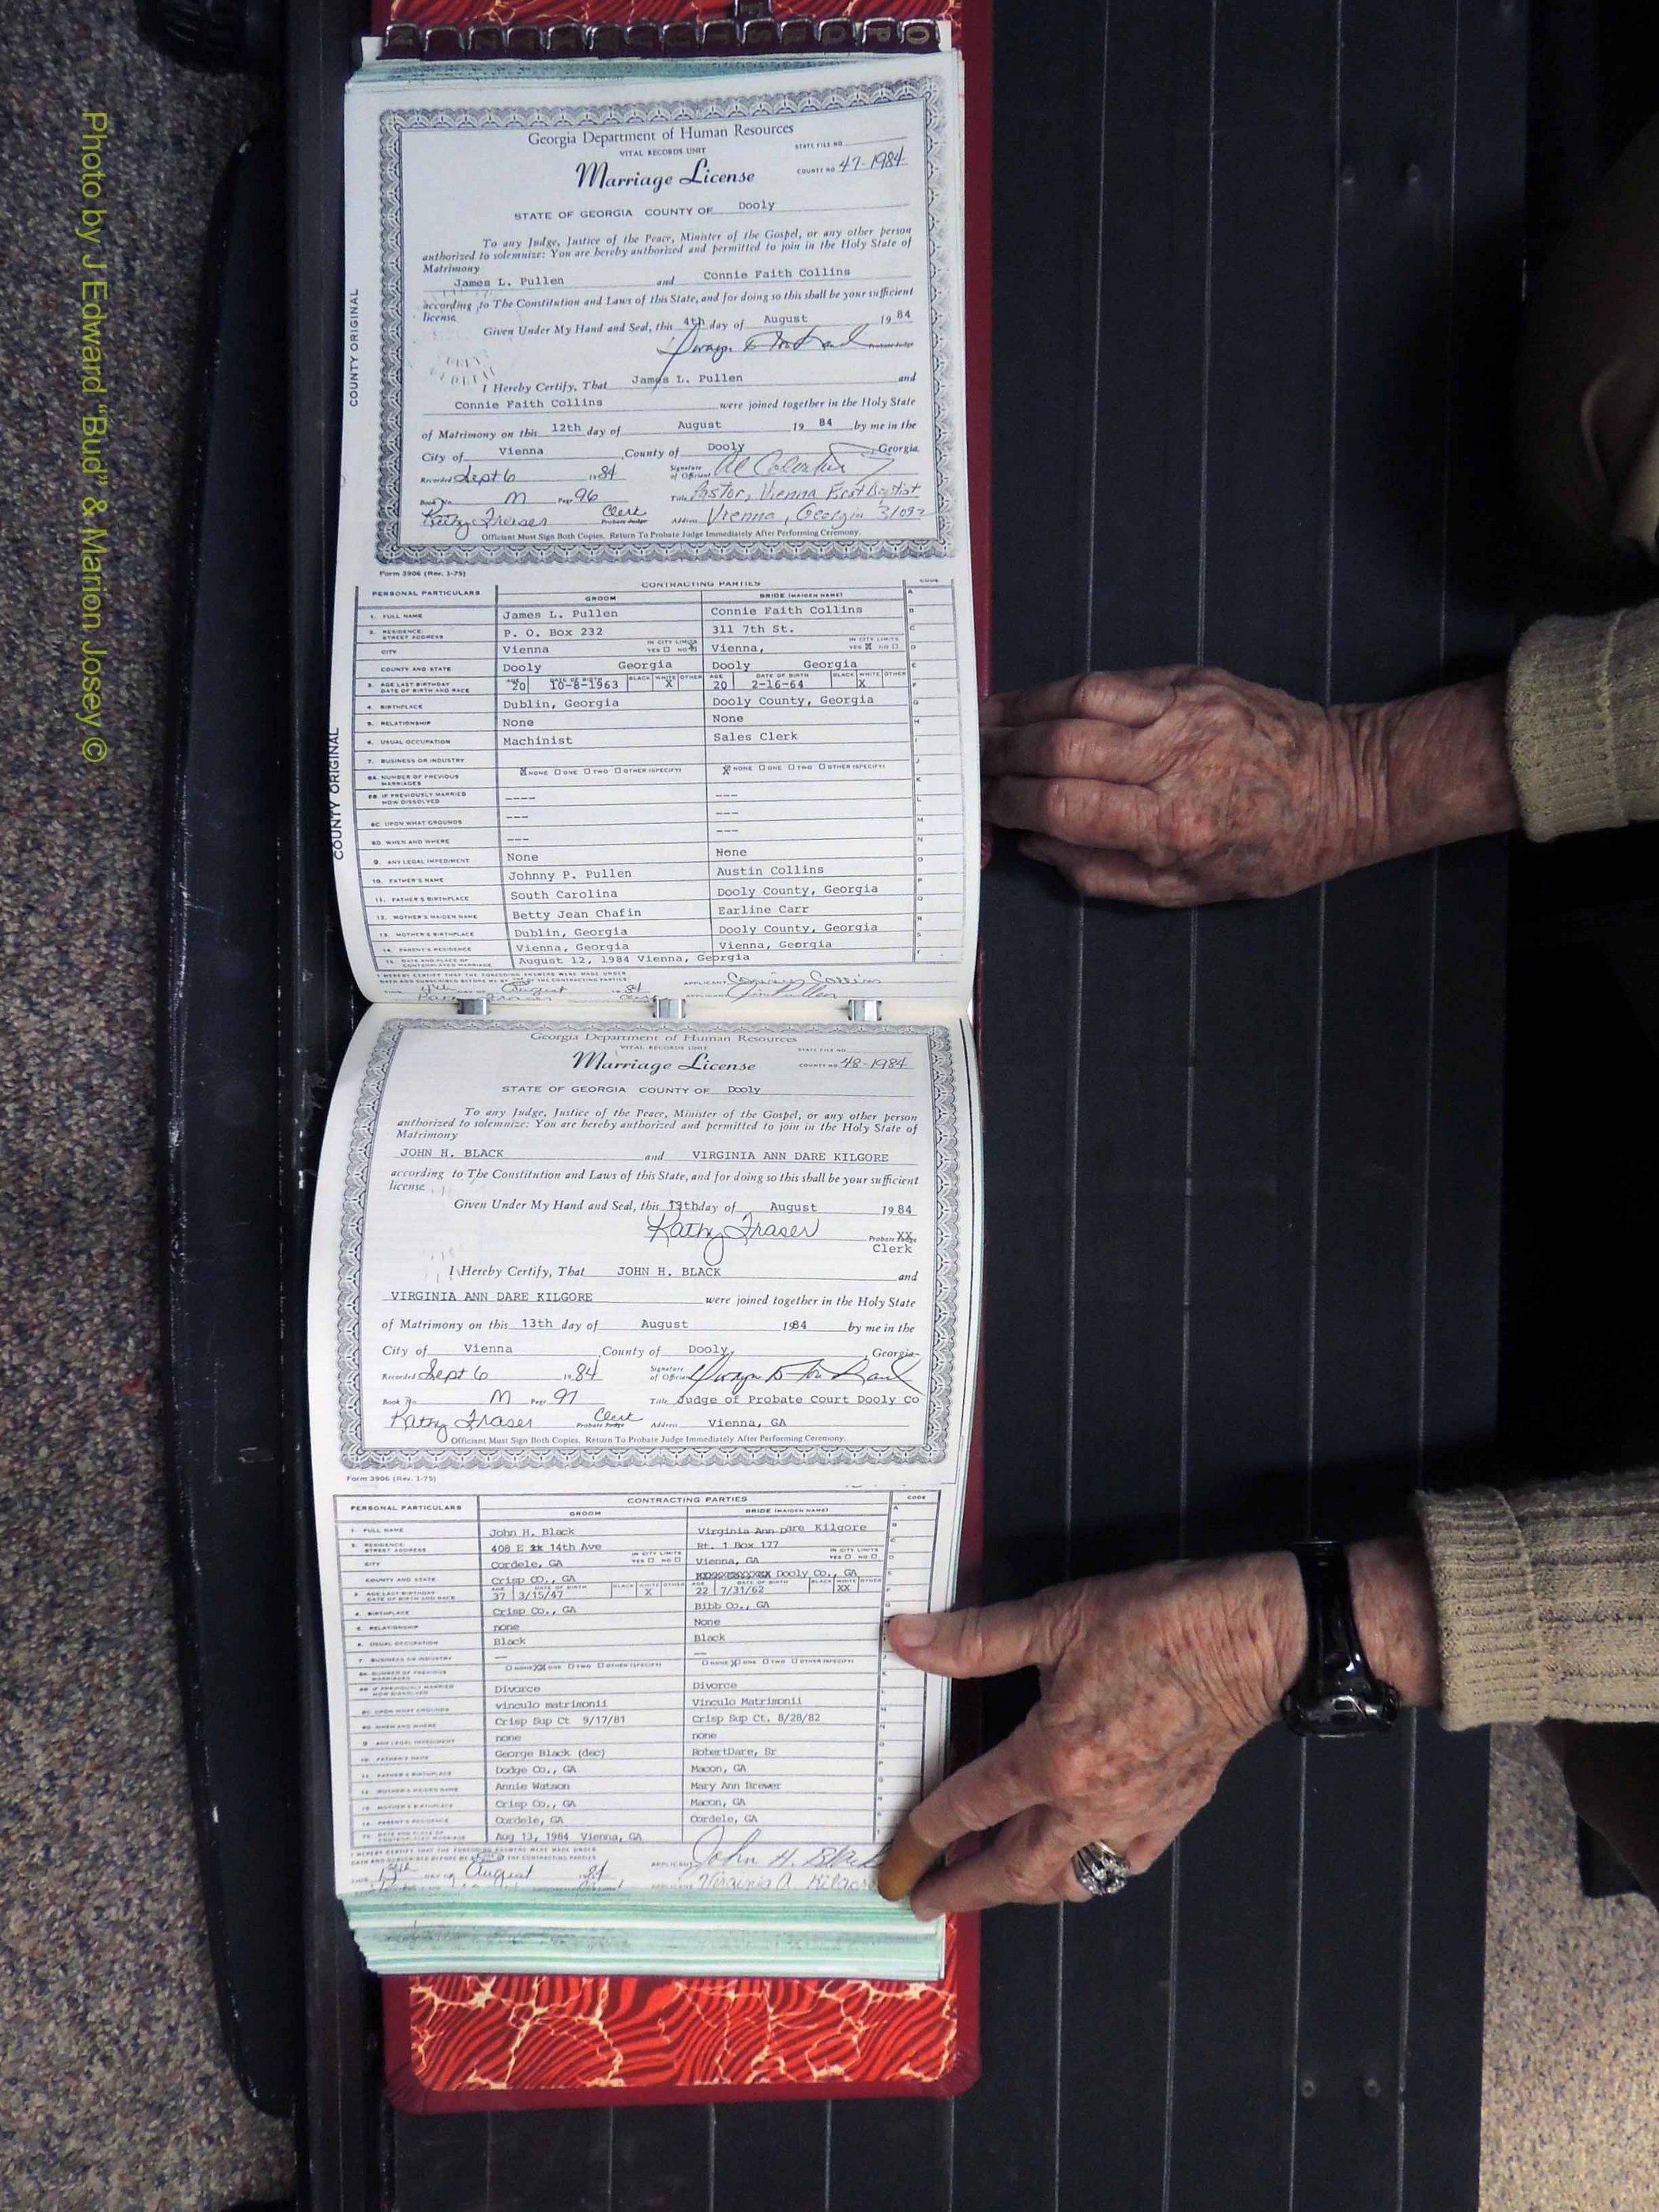 Georgia Department of Human Resources
VITAL RECORDS UNIT
STATE FILE NO.
Marriage License
COUNTY NO 47-1984
STATE OF GEORGIA COUNTY OF Dooly
To any Judge, Justice of the Peace, Minister of the Gospel, or any other person
authorized to solemnize: You are hereby authorized and permitted to join in the Holy State of
Matrimony
James L. Pullen and Connie Faith Collins
according to The Constitution and Laws of this State, and for doing so this shall be your sufficient
license.
Given Under My Hand and Seal, this 4th day of August 1984
I Hereby Certify, That James L. Pullen and
Connie Faith Collins were joined together in the Holy State
of Matrimony on this 12th day of August 19 84 by me in the
City of Vienna, County of Dooly, Georgia
Recorded Sept 6 1984 Signature of Officiant
Book No. M Page 96 Title Pastor, Vienna First Baptist
Kathy Fraser Clerk Probate Judge Address Vienna, Georgia 31092
Officiant Must Sign Both Copies. Return To Probate Judge Immediately After Performing Ceremony.
COUNTY ORIGINAL
Form 3906 (Rev. 1-75)
COUNTY ORIGINAL
PERSONAL PARTICULARS CONTRACTING PARTIES CODE
GROOM BRIDE (MAIDEN NAME)
1. FULL NAME James L. Pullen Connie Faith Collins
2. RESIDENCE: STREET ADDRESS P. O. Box 232 311 7th St.
CITY Vienna IN CITY LIMITS YES NO Vienna, IN CITY LIMITS YES X NO
COUNTY AND STATE Dooly Georgia Dooly Georgia
3. AGE LAST BIRTHDAY DATE OF BIRTH AND RACE AGE 20 DATE OF BIRTH 10-8-1963 BLACK WHITE X OTHER AGE 20 DATE OF BIRTH 2-16-64 BLACK WHITE X OTHER
4. BIRTHPLACE Dublin, Georgia Dooly County, Georgia
5. RELATIONSHIP None None
6. USUAL OCCUPATION Machinist Sales Clerk
7. BUSINESS OR INDUSTRY
8A. NUMBER OF PREVIOUS MARRIAGES X NONE ONE TWO OTHER (SPECIFY) X NONE ONE TWO OTHER (SPECIFY)
8B. IF PREVIOUSLY MARRIED HOW DISSOLVED ---- ---
8C. UPON WHAT GROUNDS --- ---
8D. WHEN AND WHERE --- ---
9. ANY LEGAL IMPEDIMENT None None
10. FATHER'S NAME Johnny P. Pullen Austin Collins
11. FATHER'S BIRTHPLACE South Carolina Dooly County, Georgia
12. MOTHER'S MAIDEN NAME Betty Jean Chafin Earline Carr
13. MOTHER'S BIRTHPLACE Dublin, Georgia Dooly County, Georgia
14. PARENT'S RESIDENCE Vienna, Georgia Vienna, Georgia
15. DATE AND PLACE OF CONTEMPLATED MARRIAGE August 12, 1984 Vienna, Georgia
I HEREBY CERTIFY THAT THE FOREGOING ANSWERS WERE MADE UNDER
OATH AND SUBSCRIBED BEFORE ME BY THE CONTRACTING PARTIES
APPLICANT Connie Collins
August 1984 APPLICANT Jim Pullen
Georgia Department of Human Resources
VITAL RECORDS UNIT
STATE FILE NO.
Marriage License
COUNTY NO 48-1984
STATE OF GEORGIA COUNTY OF Dooly
To any Judge, Justice of the Peace, Minister of the Gospel, or any other person
authorized to solemnize: You are hereby authorized and permitted to join in the Holy State of
Matrimony
JOHN H. BLACK and VIRGINIA ANN DARE KILGORE
according to The Constitution and Laws of this State, and for doing so this shall be your sufficient
license
Given Under My Hand and Seal, this 13th day of August 1984
Kathy Fraser Probate XX
Clerk
I Hereby Certify, That JOHN H. BLACK and
VIRGINIA ANN DARE KILGORE were joined together in the Holy State
of Matrimony on this 13th day of August 1984 by me in the
City of Vienna, County of Dooly, Georgia
Recorded Sept 6 1984 Signature of Officiant
Book No. M Page 97 Title Judge of Probate Court Dooly Co
Kathy Fraser Clerk Probate Judge Address Vienna, GA
Officiant Must Sign Both Copies. Return To Probate Judge Immediately After Performing Ceremony.
Form 3906 (Rev. 1-75)
PERSONAL PARTICULARS CONTRACTING PARTIES CODE
GROOM BRIDE (MAIDEN NAME)
1. FULL NAME John H. Black Virginia Ann Dare Kilgore
2. RESIDENCE: STREET ADDRESS 408 E 14th Ave Rt. 1 Box 177
CITY Cordele, GA IN CITY LIMITS YES NO Vienna, GA IN CITY LIMITS YES NO
COUNTY AND STATE Crisp CO., GA Dooly Co., GA
3. AGE LAST BIRTHDAY DATE OF BIRTH AND RACE AGE 37 DATE OF BIRTH 3/15/47 BLACK WHITE X OTHER AGE 22 DATE OF BIRTH 7/31/62 BLACK WHITE XX OTHER
4. BIRTHPLACE Crisp Co., GA Bibb Co., GA
5. RELATIONSHIP none None
6. USUAL OCCUPATION Black Black
7. BUSINESS OR INDUSTRY — —
8A. NUMBER OF PREVIOUS MARRIAGES NONE XX ONE TWO OTHER (SPECIFY) NONE X ONE TWO OTHER (SPECIFY)
8B. IF PREVIOUSLY MARRIED HOW DISSOLVED Divorce Divorce
8C. UPON WHAT GROUNDS vinculo matrimonii Vinculo Matrimonii
8D. WHEN AND WHERE Crisp Sup Ct 9/17/81 Crisp Sup Ct. 8/28/82
9. ANY LEGAL IMPEDIMENT none none
10. FATHER'S NAME George Black (dec) RobertDare, Sr
11. FATHER'S BIRTHPLACE Dodge Co., GA Macon, GA
12. MOTHER'S MAIDEN NAME Annie Watson Mary Ann Brewer
13. MOTHER'S BIRTHPLACE Crisp Co., GA Macon, GA
14. PARENT'S RESIDENCE Cordele, GA Cordele, GA
15. DATE AND PLACE OF CONTEMPLATED MARRIAGE Aug 13, 1984 Vienna, GA
I HEREBY CERTIFY THAT THE FOREGOING ANSWERS WERE MADE UNDER
OATH AND SUBSCRIBED BEFORE ME BY THE CONTRACTING PARTIES
13th DAY OF August 1984 APPLICANT John H. Black
Virginia A. Kilgore
Photo by J Edward "Bud" & Marion Jossey ©